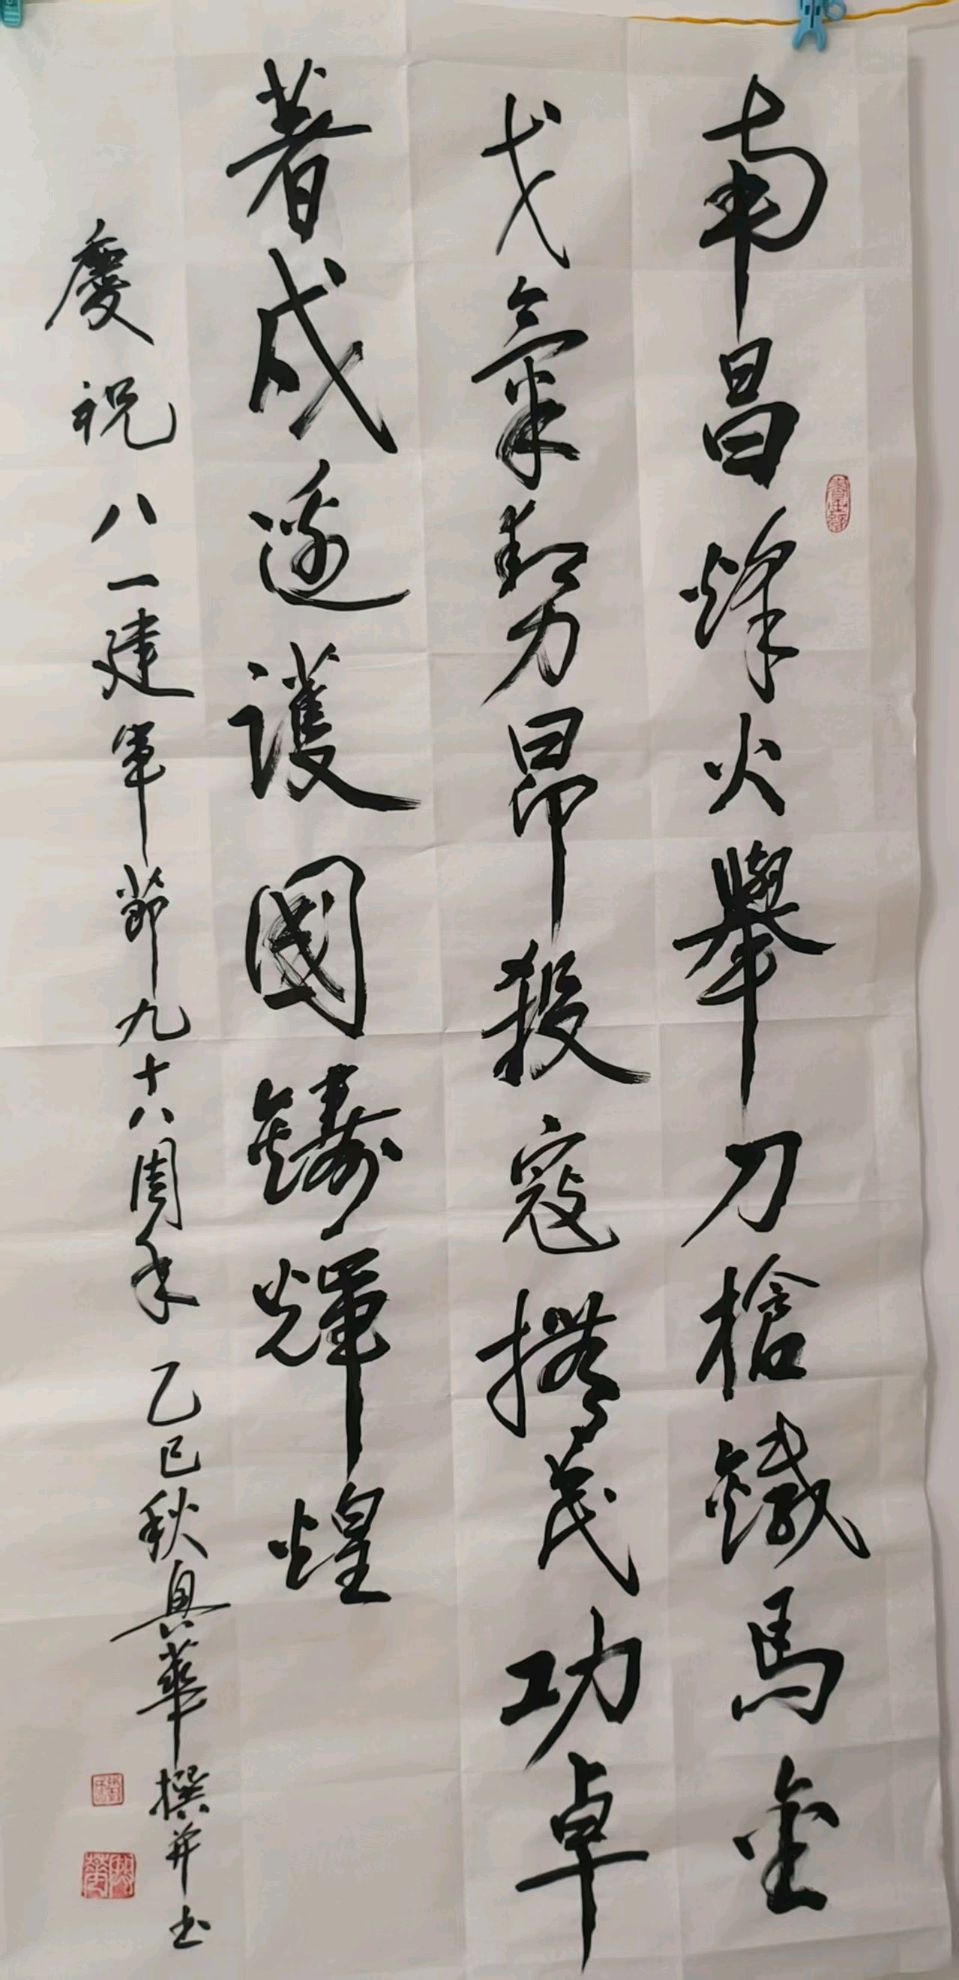 南昌烽火舉刀槍鐵馬金
戈氣勢昂殺寇功卓
著戍邊護國鑄輝煌
慶祝八一建軍節九十八周年 乙巳秋興華撰并书